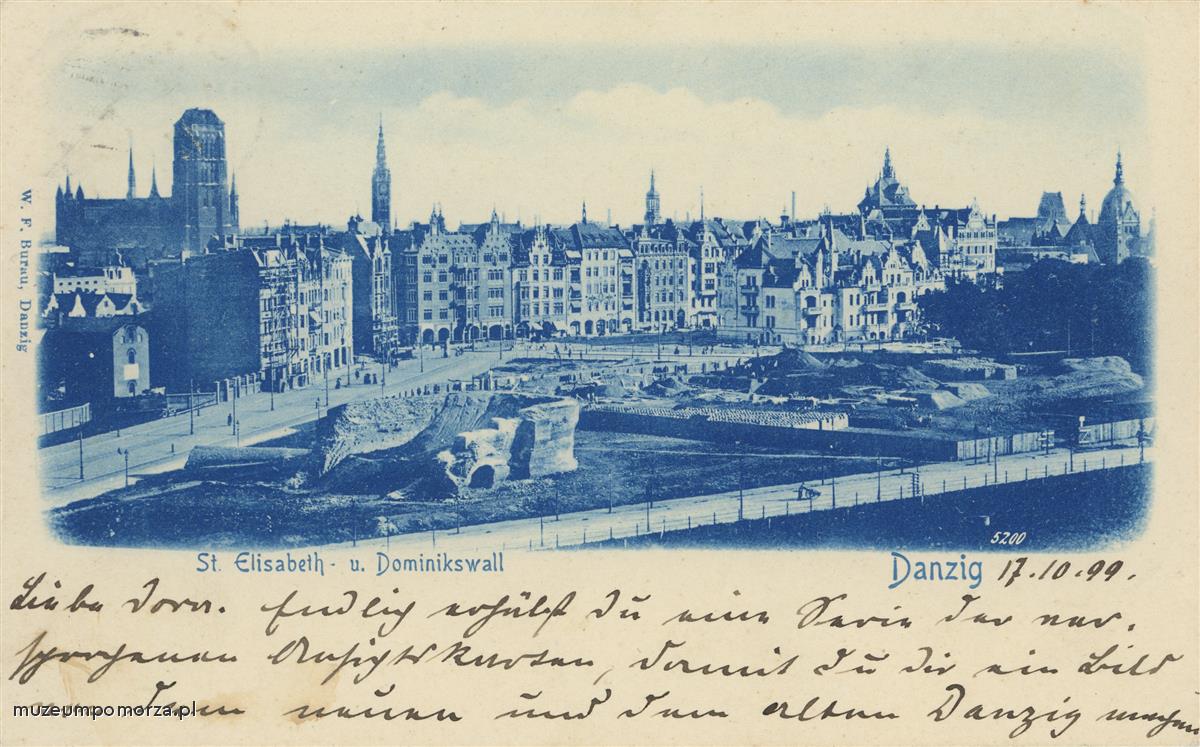 W. F. Burau, Danzig
5200
St. Elisabeth- u. Dominikswall
Danzig 17.10.99.
Liebe Dora. Endlich erhälst Du eine Serie der ver-
sprochenen Ansichtskarten, damit Du dir ein Bild
von dem neuen und dem alten Danzig machen
muzeumpomorza.pl